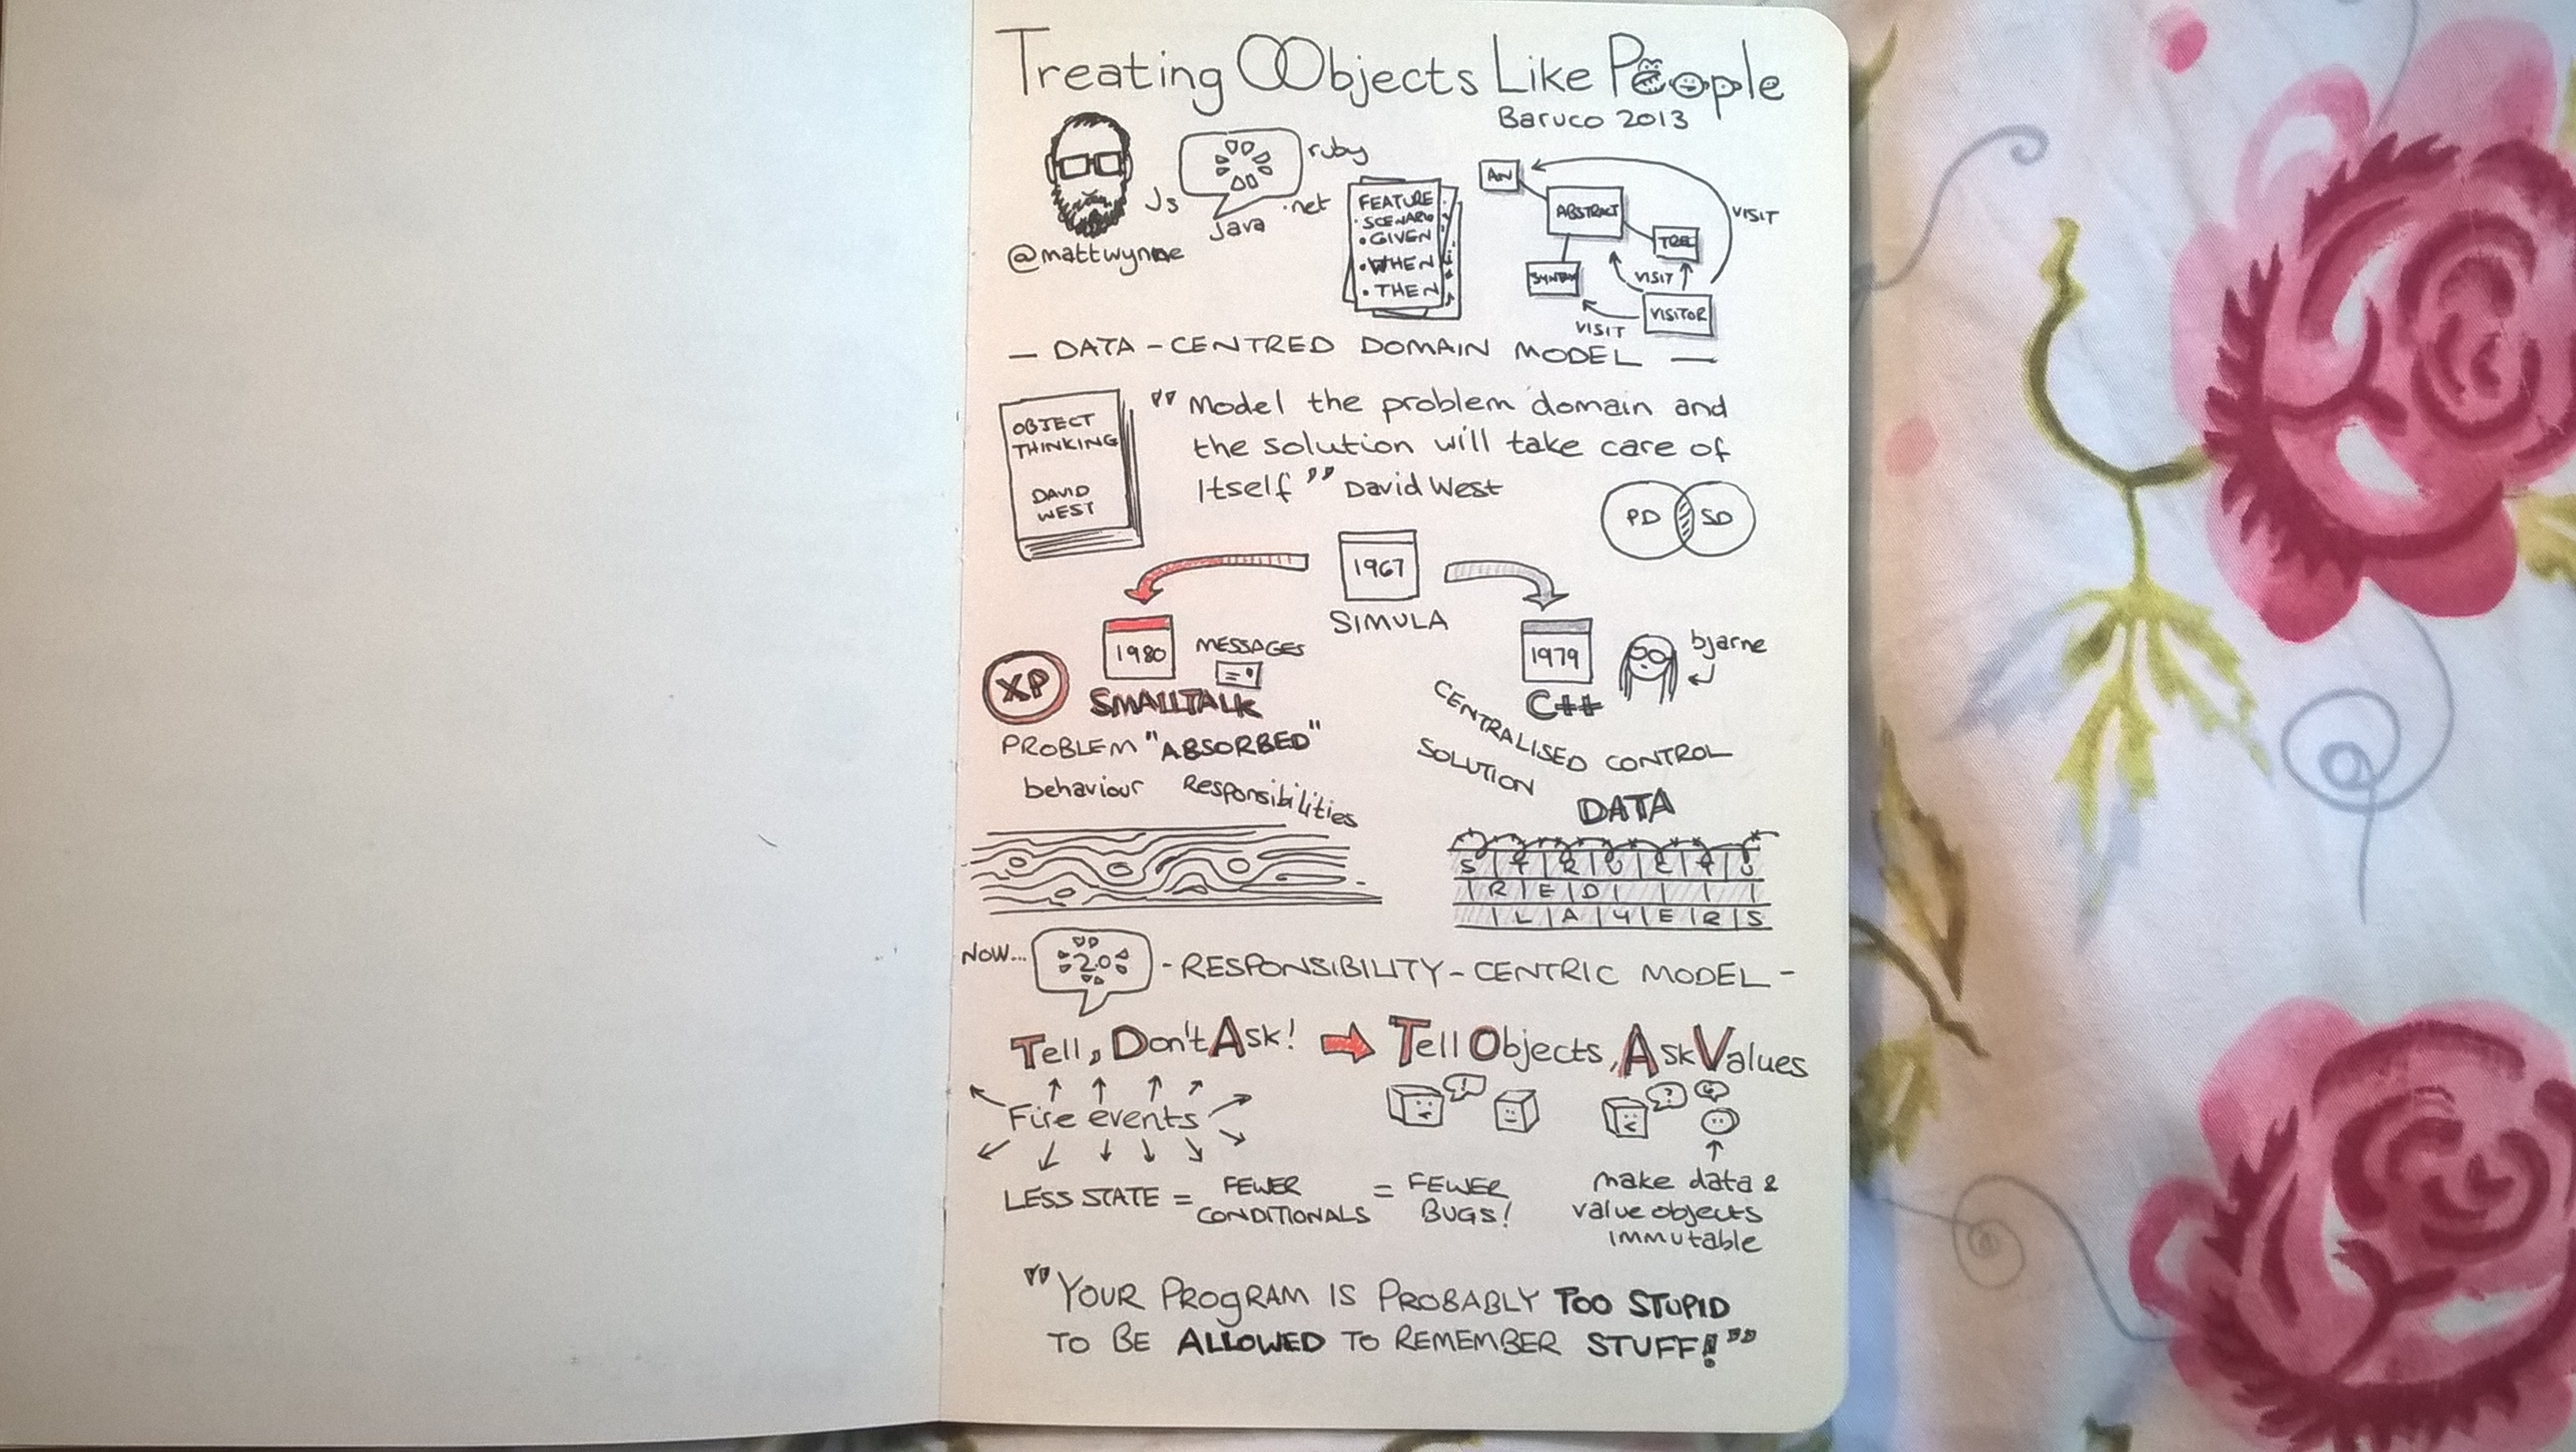 Treating OObjects Like People
Baruco 2013
@mattwynne
Js
ruby
java
.net
FEATURE
• SCENARIO
• GIVEN
• WHEN
• THEN
AN
ABSTRACT
SYNTAX
TREE
VISITOR
VISIT
VISIT
VISIT
— DATA - CENTRED DOMAIN MODEL —
OBJECT
THINKING
DAVID
WEST
" Model the problem domain and
the solution will take care of
itself " David West
PD
SD
1967
SIMULA
1980
MESSAGES
XP
SMALLTALK
PROBLEM "ABSORBED"
behaviour Responsibilities
1979
bjarne
C++
CENTRALISED CONTROL
SOLUTION
DATA
S T R U C T U
R E D
L A Y E R S
NOW...
2.0
- RESPONSIBILITY - CENTRIC MODEL -
Tell, Don't Ask!
Tell Objects, Ask Values
!
?
Fire events
LESS STATE = FEWER CONDITIONALS = FEWER BUGS!
make data &
value objects
immutable
" YOUR PROGRAM IS PROBABLY TOO STUPID
TO BE ALLOWED TO REMEMBER STUFF! "